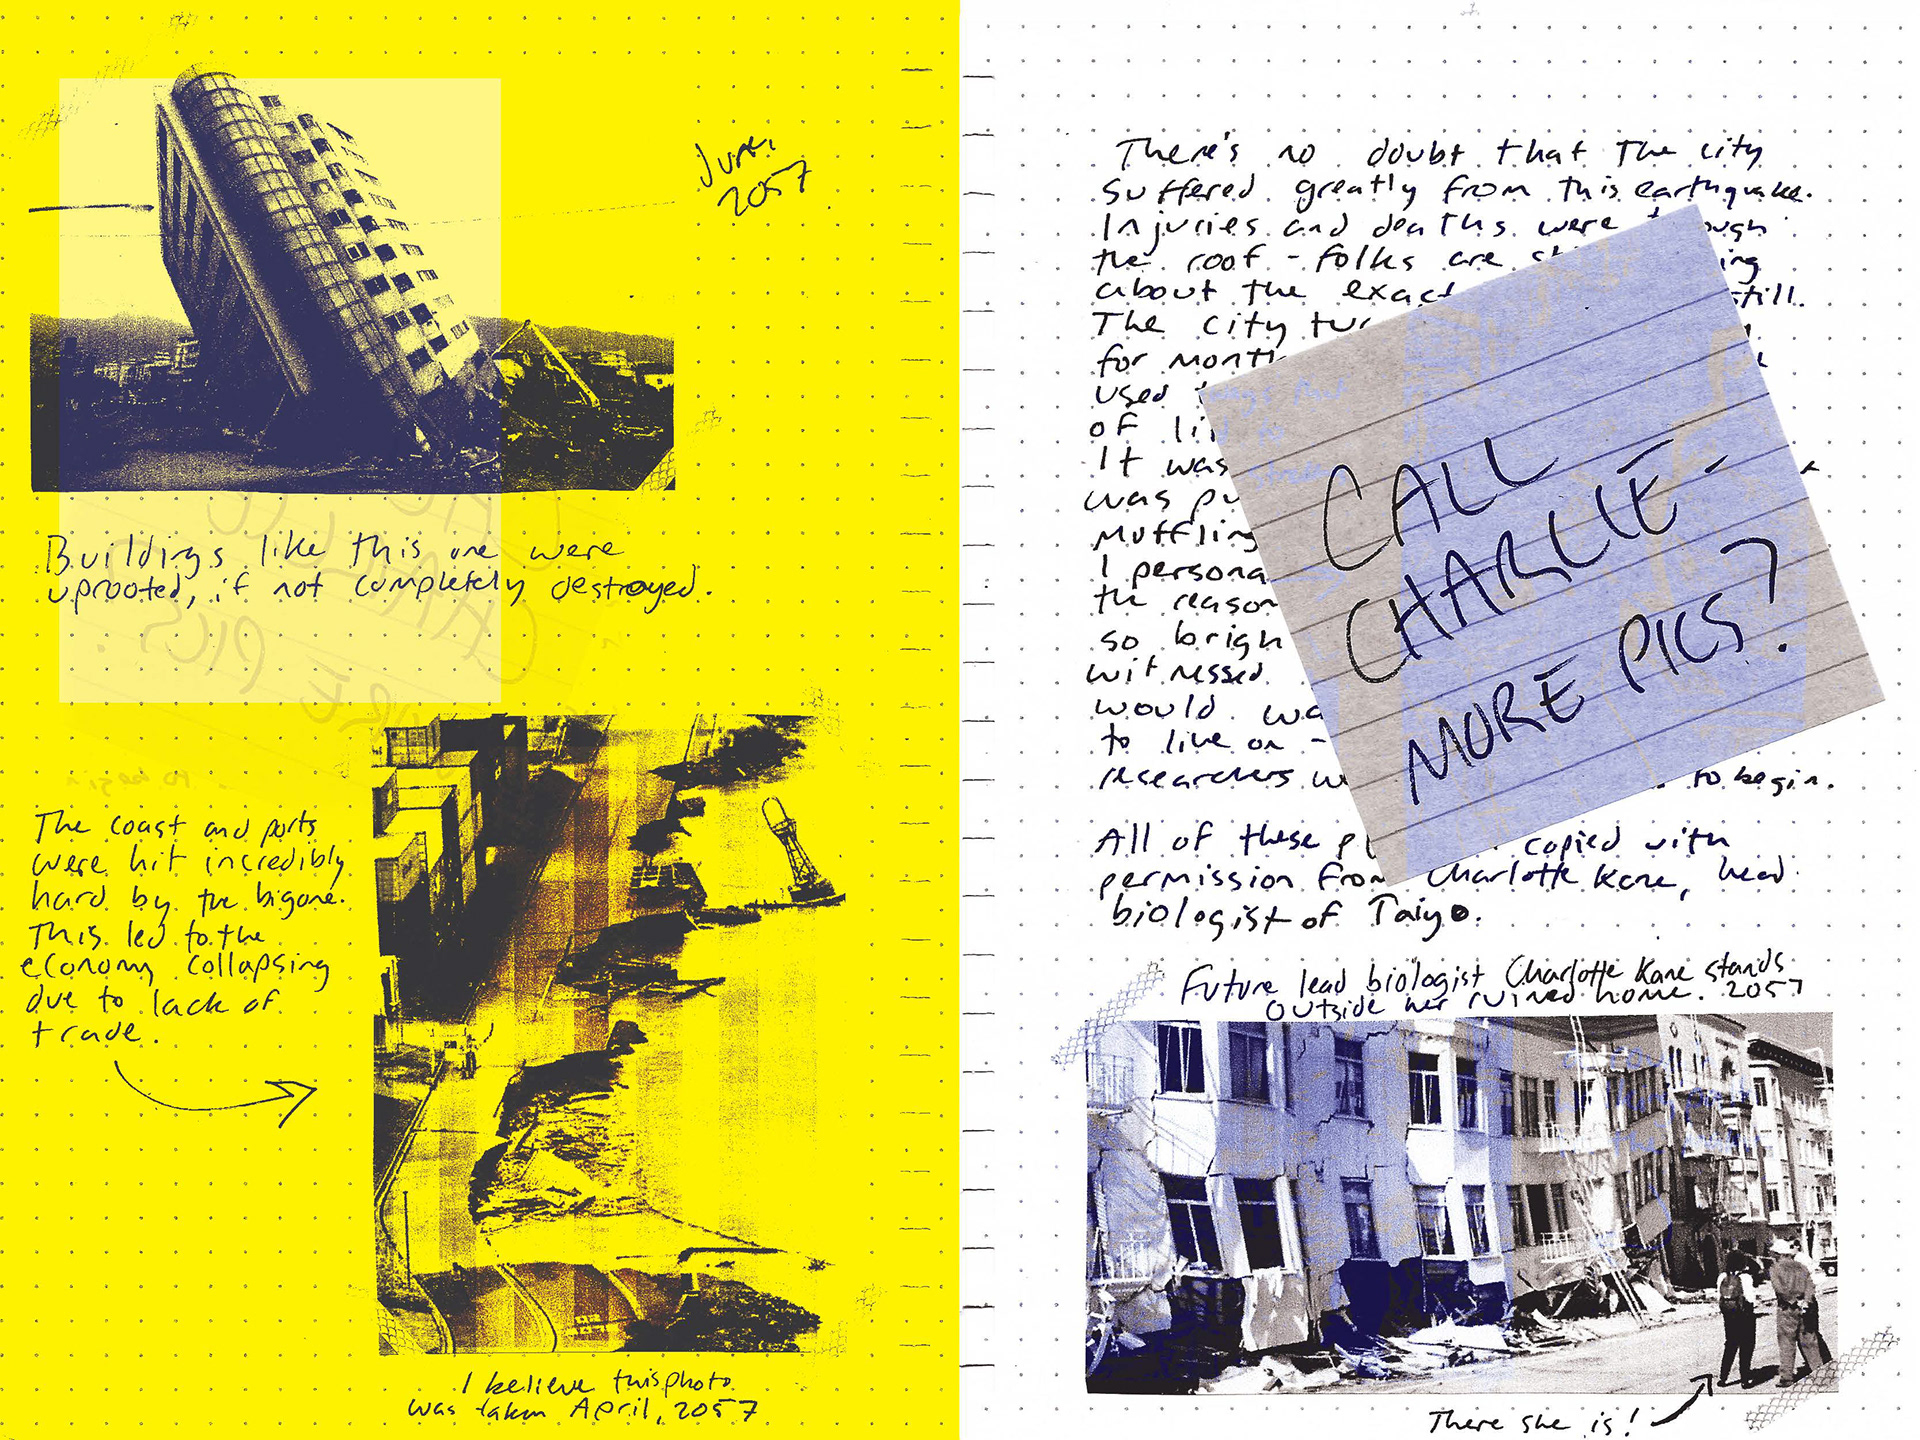 June,
2057
Buildings like this one were
uprooted, if not completely destroyed.
The coast and ports
were hit incredibly
hard by the bigone.
This led to the
economy collapsing
due to lack of
trade.
I believe this photo
was taken April, 2057
There's no doubt that the city
suffered greatly from this earthquake.
Injuries and deaths were
the roof - folks are
about the exact still.
The city
for
used
of
It was
was
Muffling
I
the reason
so
witnessed
would
to live on -
researchers to begin.
All of these copied with
permission from Charlotte Kane, head
biologist of Taiyo.
CALL
CHARLIE -
MORE PICS?
Future lead biologist Charlotte Kane stands
outside her ruined home. 2057
There she is!